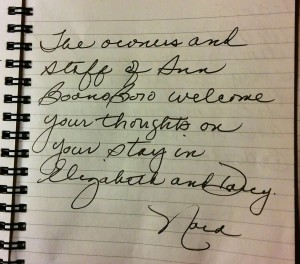 The owners and
staff of Inn
BoonsBoro welcome
your thoughts on
your stay in
Elizabeth and Darcy.
Nora